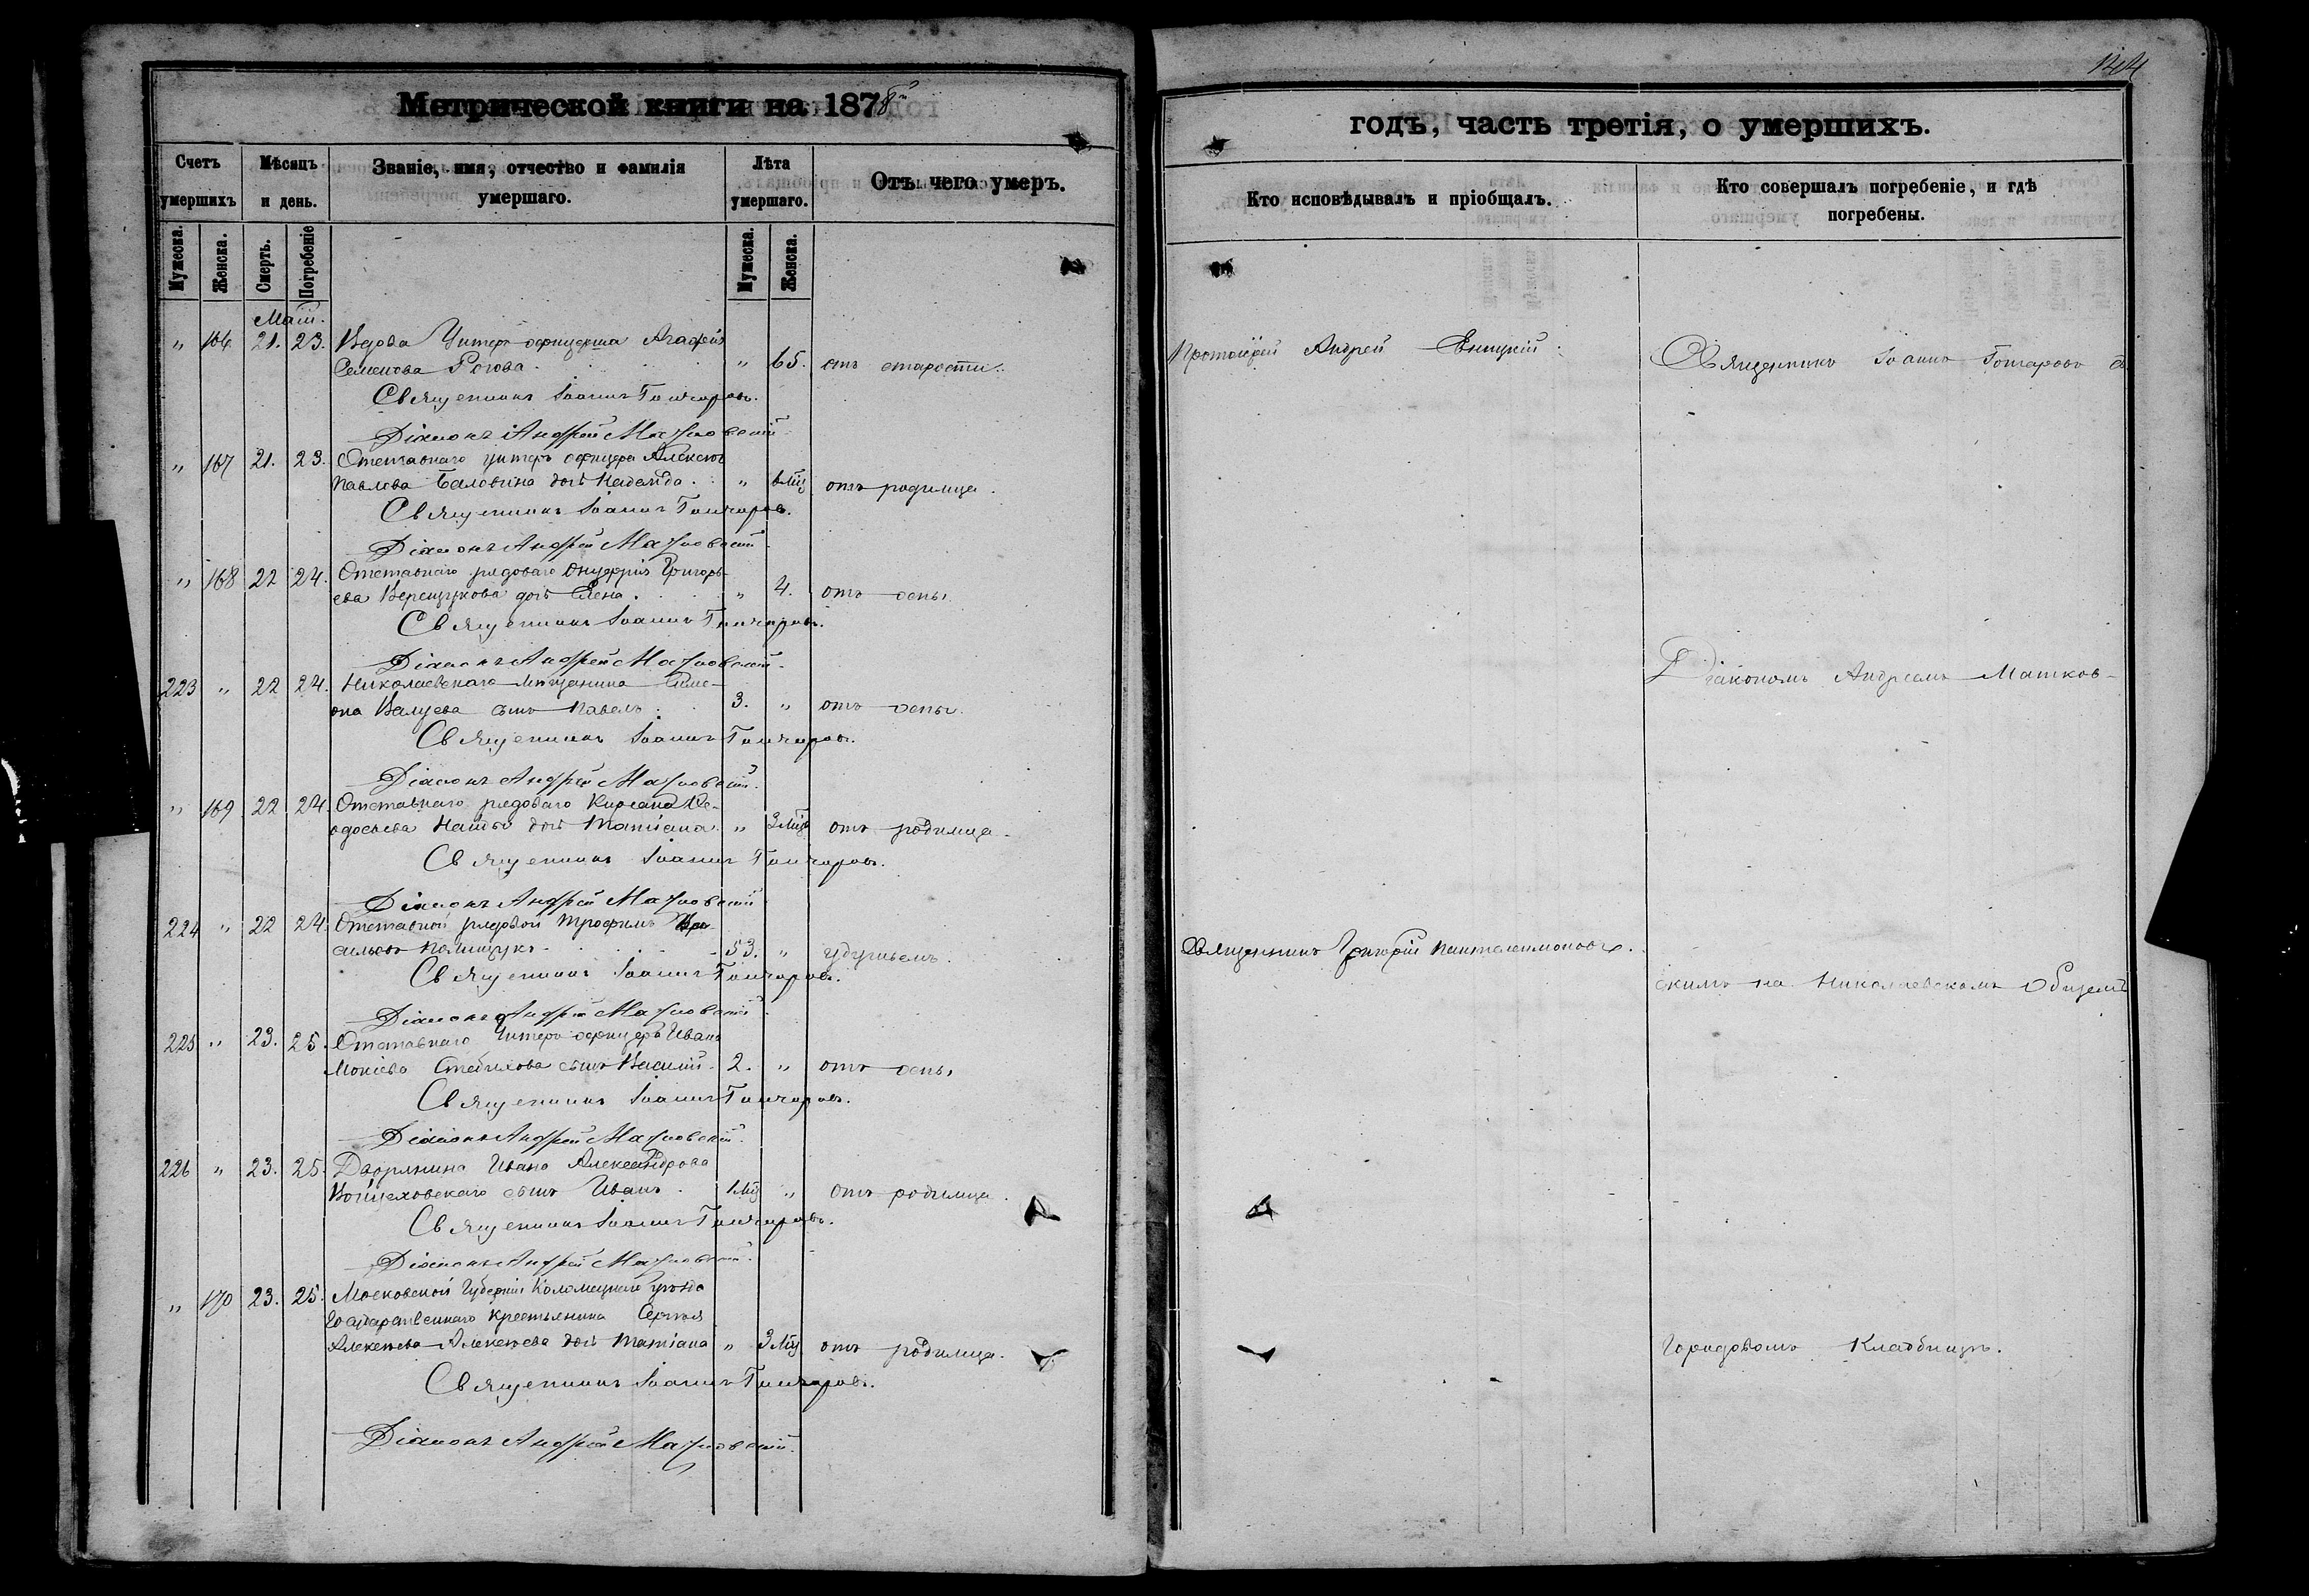 144
Метрической книги на 1878й
годъ, часть третія, о умершихъ.
Счетъ умершихъ
Мѣсяцъ и день.
Званіе, имя, отчество и фамилія умершаго.
Лѣта умершаго.
Отъ чего умеръ.
Кто исповѣдывалъ и пріобщалъ.
Кто совершалъ погребеніе, и гдѣ погребены.
Мужеска. Женска. Смерть. Погребеніе Мужеска. Женска.
Маій.
" 166 21. 23. Вдова Унтеръ офицерша Агафія
Семенова Рогова. " 65. отъ старости.
Протоіерей Андрей
Священникъ Іоаннъ Гончаровъ съ
Священникъ Іоаннъ Гончаровъ.
Діаконъ Андрей Матковскій
" 167 21. 23. Отставнаго унтеръ офицера Алексѣя
Павлова дочь Надежда. " 6 мц отъ родимца.
Священникъ Іоаннъ Гончаровъ.
Діаконъ Андрей Матковскій
" 168 22 24. Отставнаго рядоваго Онуфрія Григорь-
ева дочь Елена. " 4. отъ оспы.
Священникъ Іоаннъ Гончаровъ.
Діаконъ Андрей Матковскій.
Діакономъ Андреемъ Матков-
223 " 22 24. Николаевскаго мѣщанина Симе-
она Валуева сынъ Павелъ. 3. " отъ оспы.
Священникъ Іоаннъ Гончаровъ.
Діаконъ Андрей Матковскій.
" 169 22 24 Отставнаго рядоваго Ѳе-
одосьева дочь Татіана. " 3 мцв отъ родимца.
Священникъ Іоаннъ Гончаровъ.
Діаконъ Андрей Матковскій
224 " 22 24. Отставной рядовой Трофимъ Ва-
сильевъ Полищукъ 53. " удушьемъ.
Священникъ Григорій Пантелеимоновъ.
Священникъ Іоаннъ Гончаровъ.
скимъ на Николаевскомъ Общемъ
Діаконъ Андрей Матковскій
225 " 23. 25. Отставнаго Унтеръ офицера Ивана
сынъ Василій. 2. " отъ оспы
Священникъ Іоаннъ Гончаровъ.
Діаконъ Андрей Матковскій.
226 " 23. 25. Дворянина Ивана Александрова
Войцеховскаго сынъ Иванъ. 1 мц " отъ родимца.
Священникъ Іоаннъ Гончаровъ.
Діаконъ Андрей Матковскій.
" 170 23. 25. Московской Губерніи Коломецкаго уѣзда
Государственнаго крестьянина Сергѣя
Алексѣева Алексѣева дочь Татіана " 3 мц отъ родимца.
Городовомъ Кладбищѣ.
Священникъ Іоаннъ Гончаровъ.
Діаконъ Андрей Матковскій.